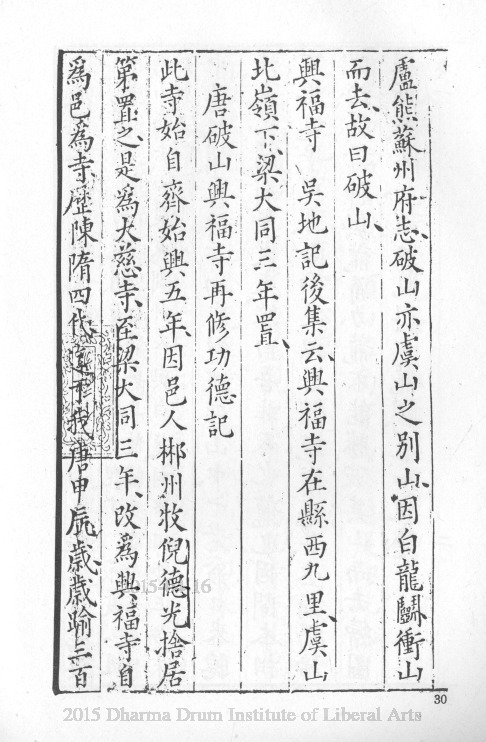 盧熊蘇州府志破山亦虞山之別山因白龍鬬衝山
而去故曰破山
興福寺　吳地記後集云興福寺在縣西九里虞山
北嶺下梁大同三年置
唐破山興福寺再修功德記
此寺始自齊始興五年因邑人郴州牧倪德光捨居
第置之是爲大慈寺至梁大同三年改爲興福寺自
爲邑爲寺歷陳隋四代 于我唐申 歲歲踰三百
30
2015 Dharma Drum Institute of Liberal Arts